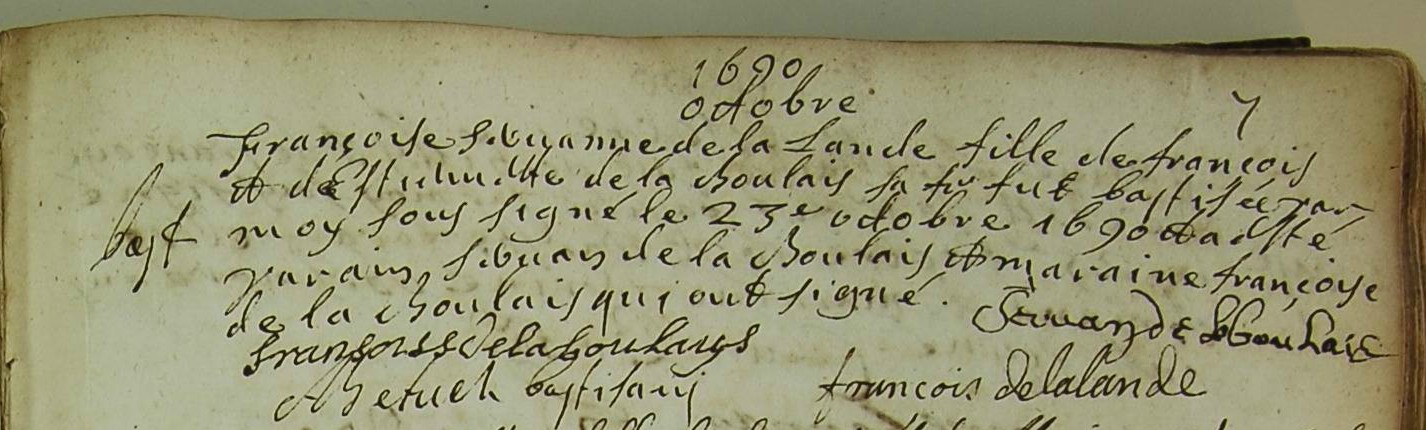 1690
octobre
7
Françoise Servanne de la Lande fille de françois
et de de la Boulais sa fe fut baptisée par
bapt
moy sous signé le 23e octobre 1690 et a esté
parain Servan de la Boulais et maraine françoise
de la Boulais qui ont signé.
Servan de la Boulais
françoise Delaboulays
baptisant
francois delalande